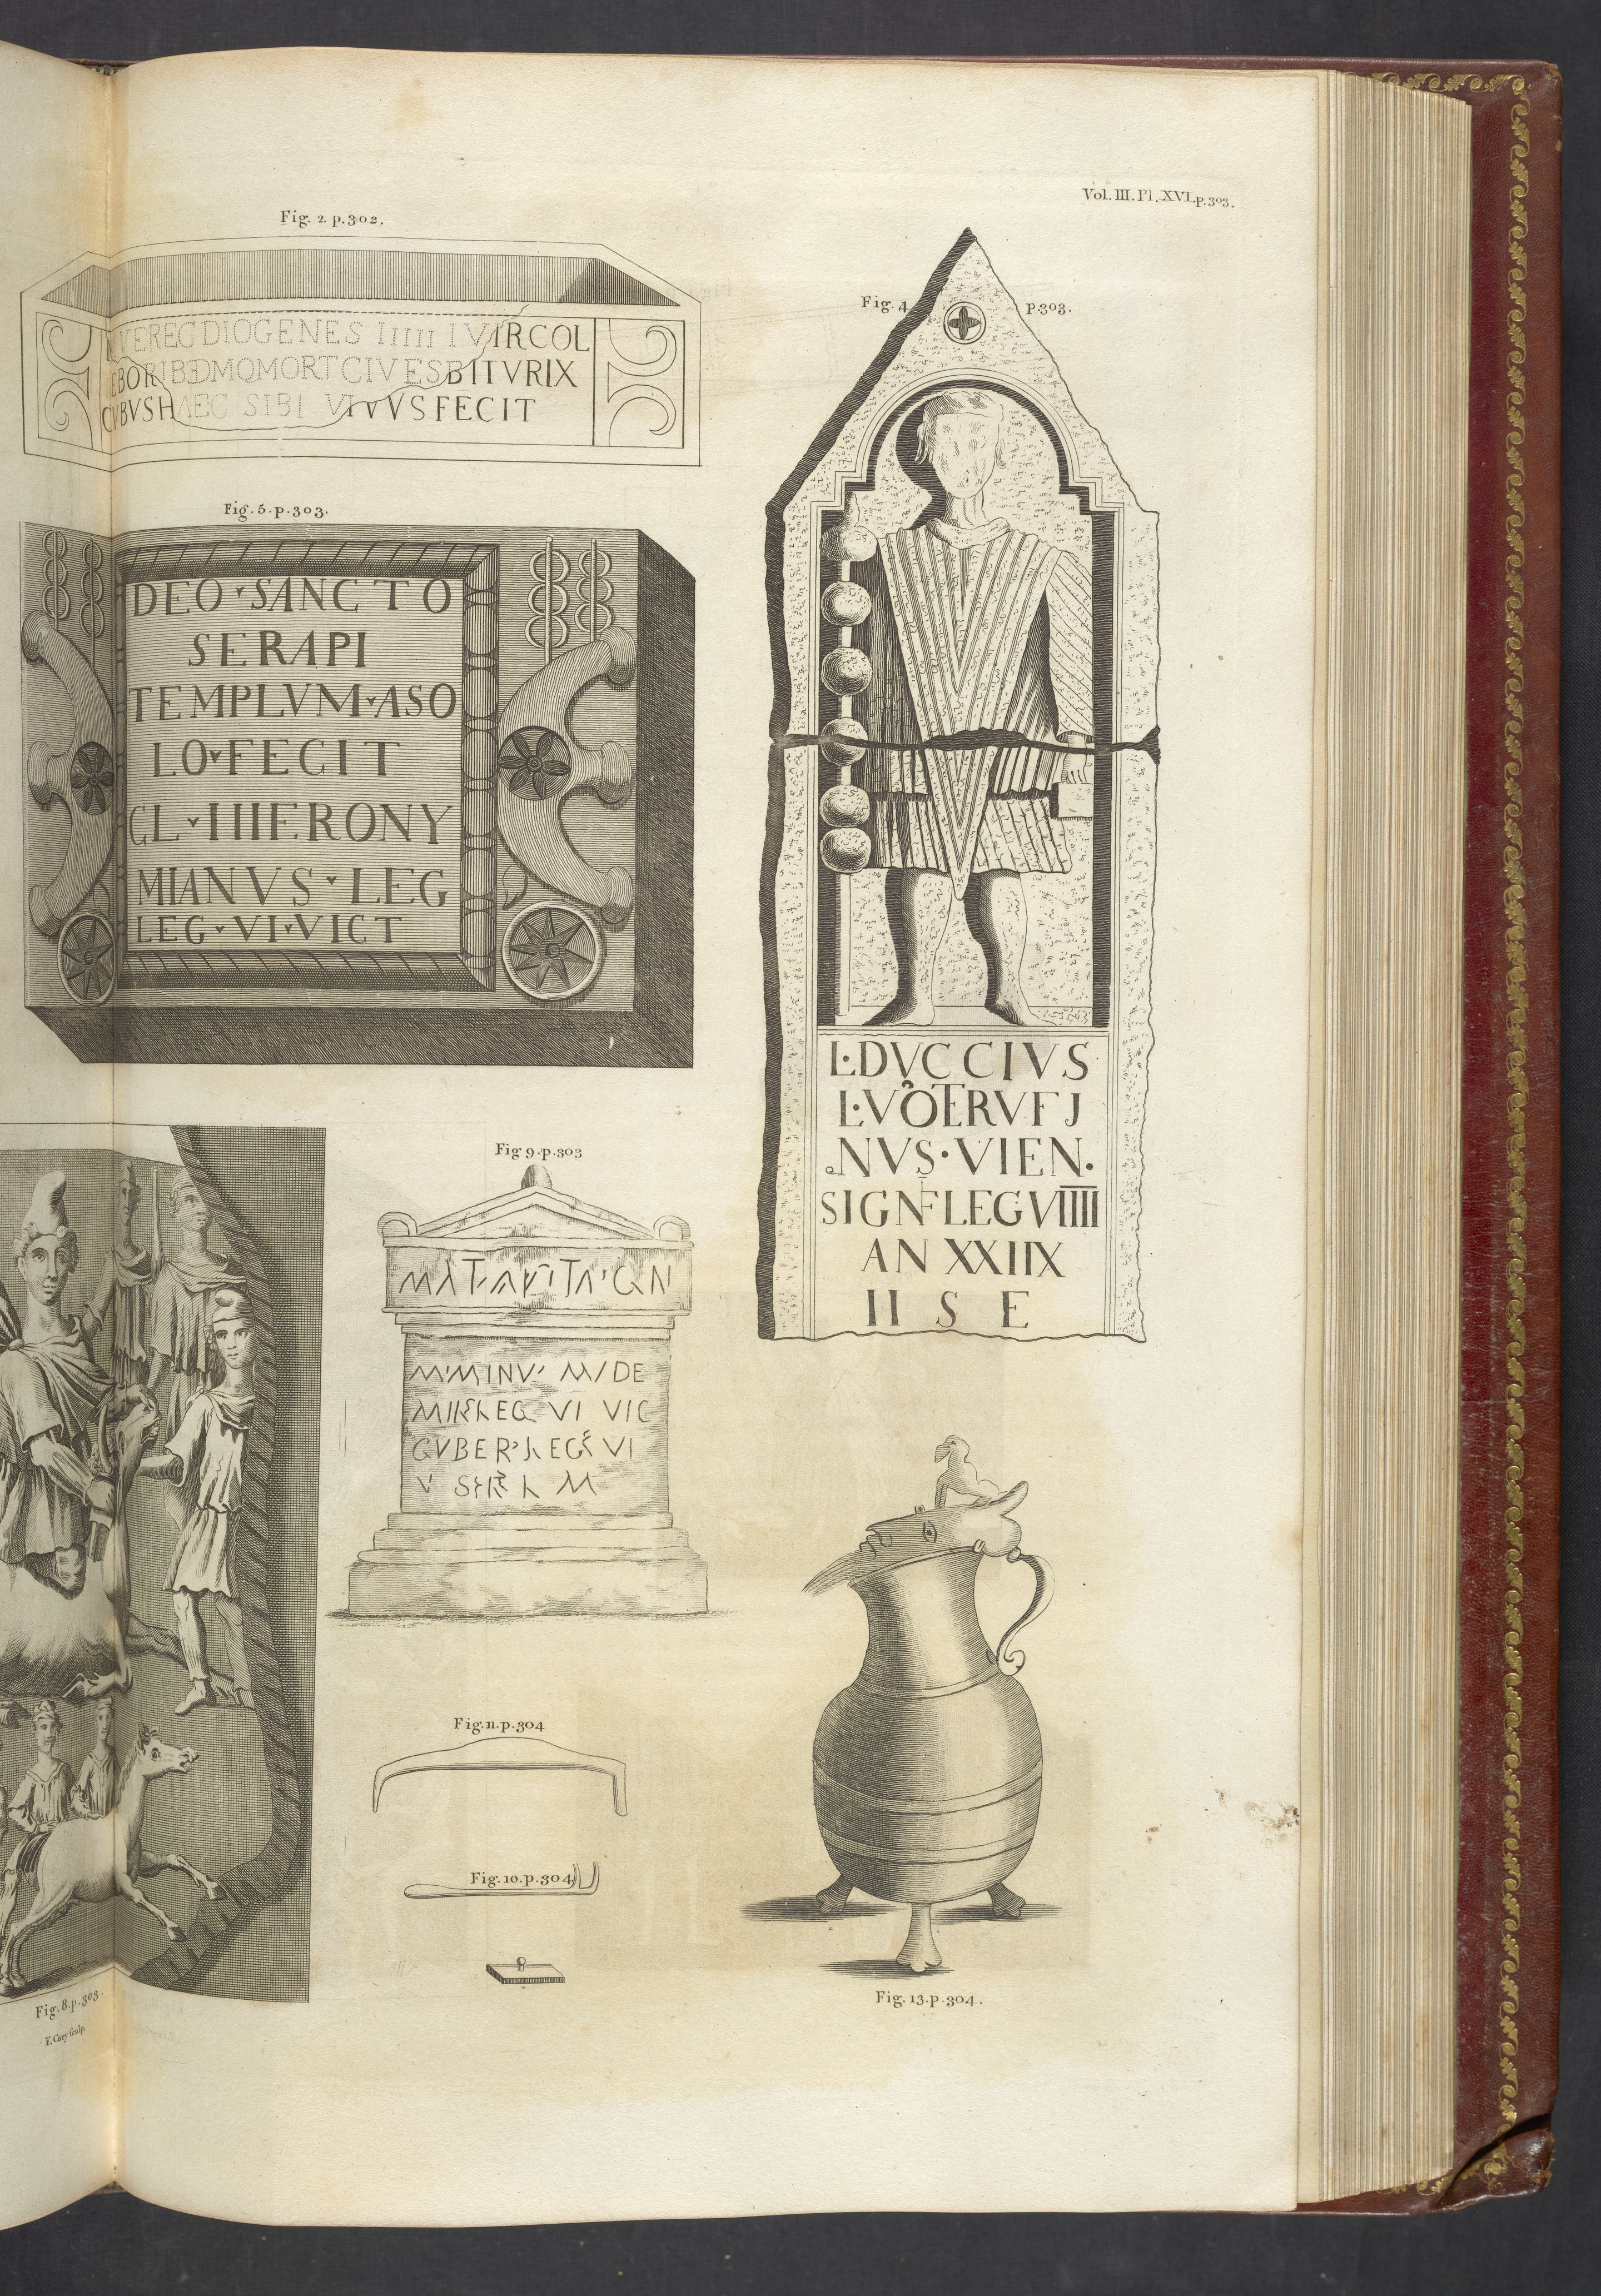 Vol. III. Pl. XVI. p. 303.
Fig. 2. p. 302.
VEREC DIOGENES IIIII I VIRCOL
EBORIBEDMQMORT CIVES BITVRIX
CVBVS HAEC SIBI VIVVS FECIT
Fig. 5. p. 303.
DEO SANCTO
SERAPI
TEMPLVM ASO
LO FECIT
CL HIIERONY
MIANVS LEG
LEG VI VICT
Fig. 4. p. 303.
L·DVCCIVS
L·VOTERVFJ
NVS·VIEN·
SIGNF LEGVIIIII
AN XXIIX
II S E
Fig 9. p. 303
M'MINV' M/DE
LEG VI VIC
GVBER' LEG VI
Fig. 11. p. 304
Fig. 10. p. 304
Fig. 8. p. 303.
F. Cary sculp.
Fig. 13. p. 304.